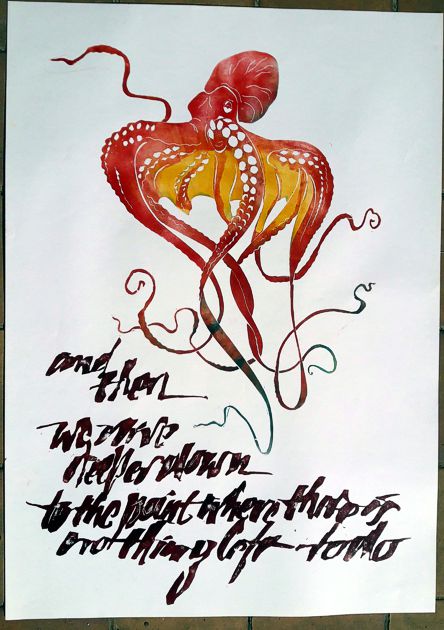 and
then
we dive
deeper down
to the point where there is
nothing left to do